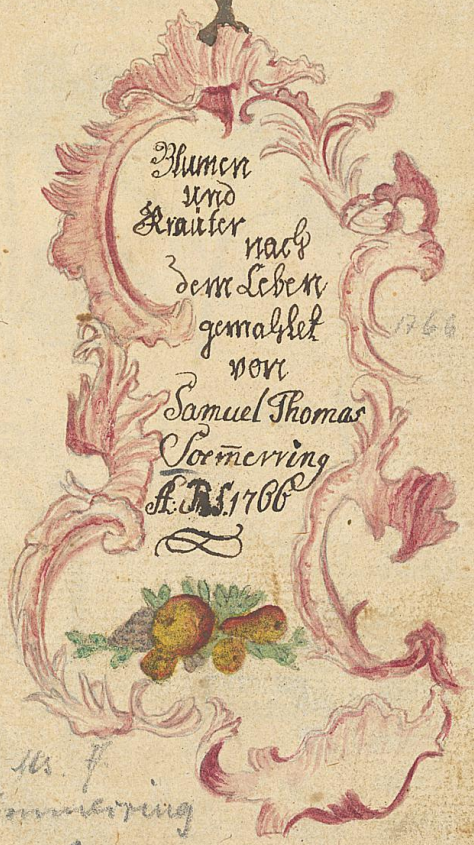 Blumen
und
Kräuter
nach
dem Leben
gemahlet
von
Samuel Thomas
Soem̅erring
1766
1766
Ms